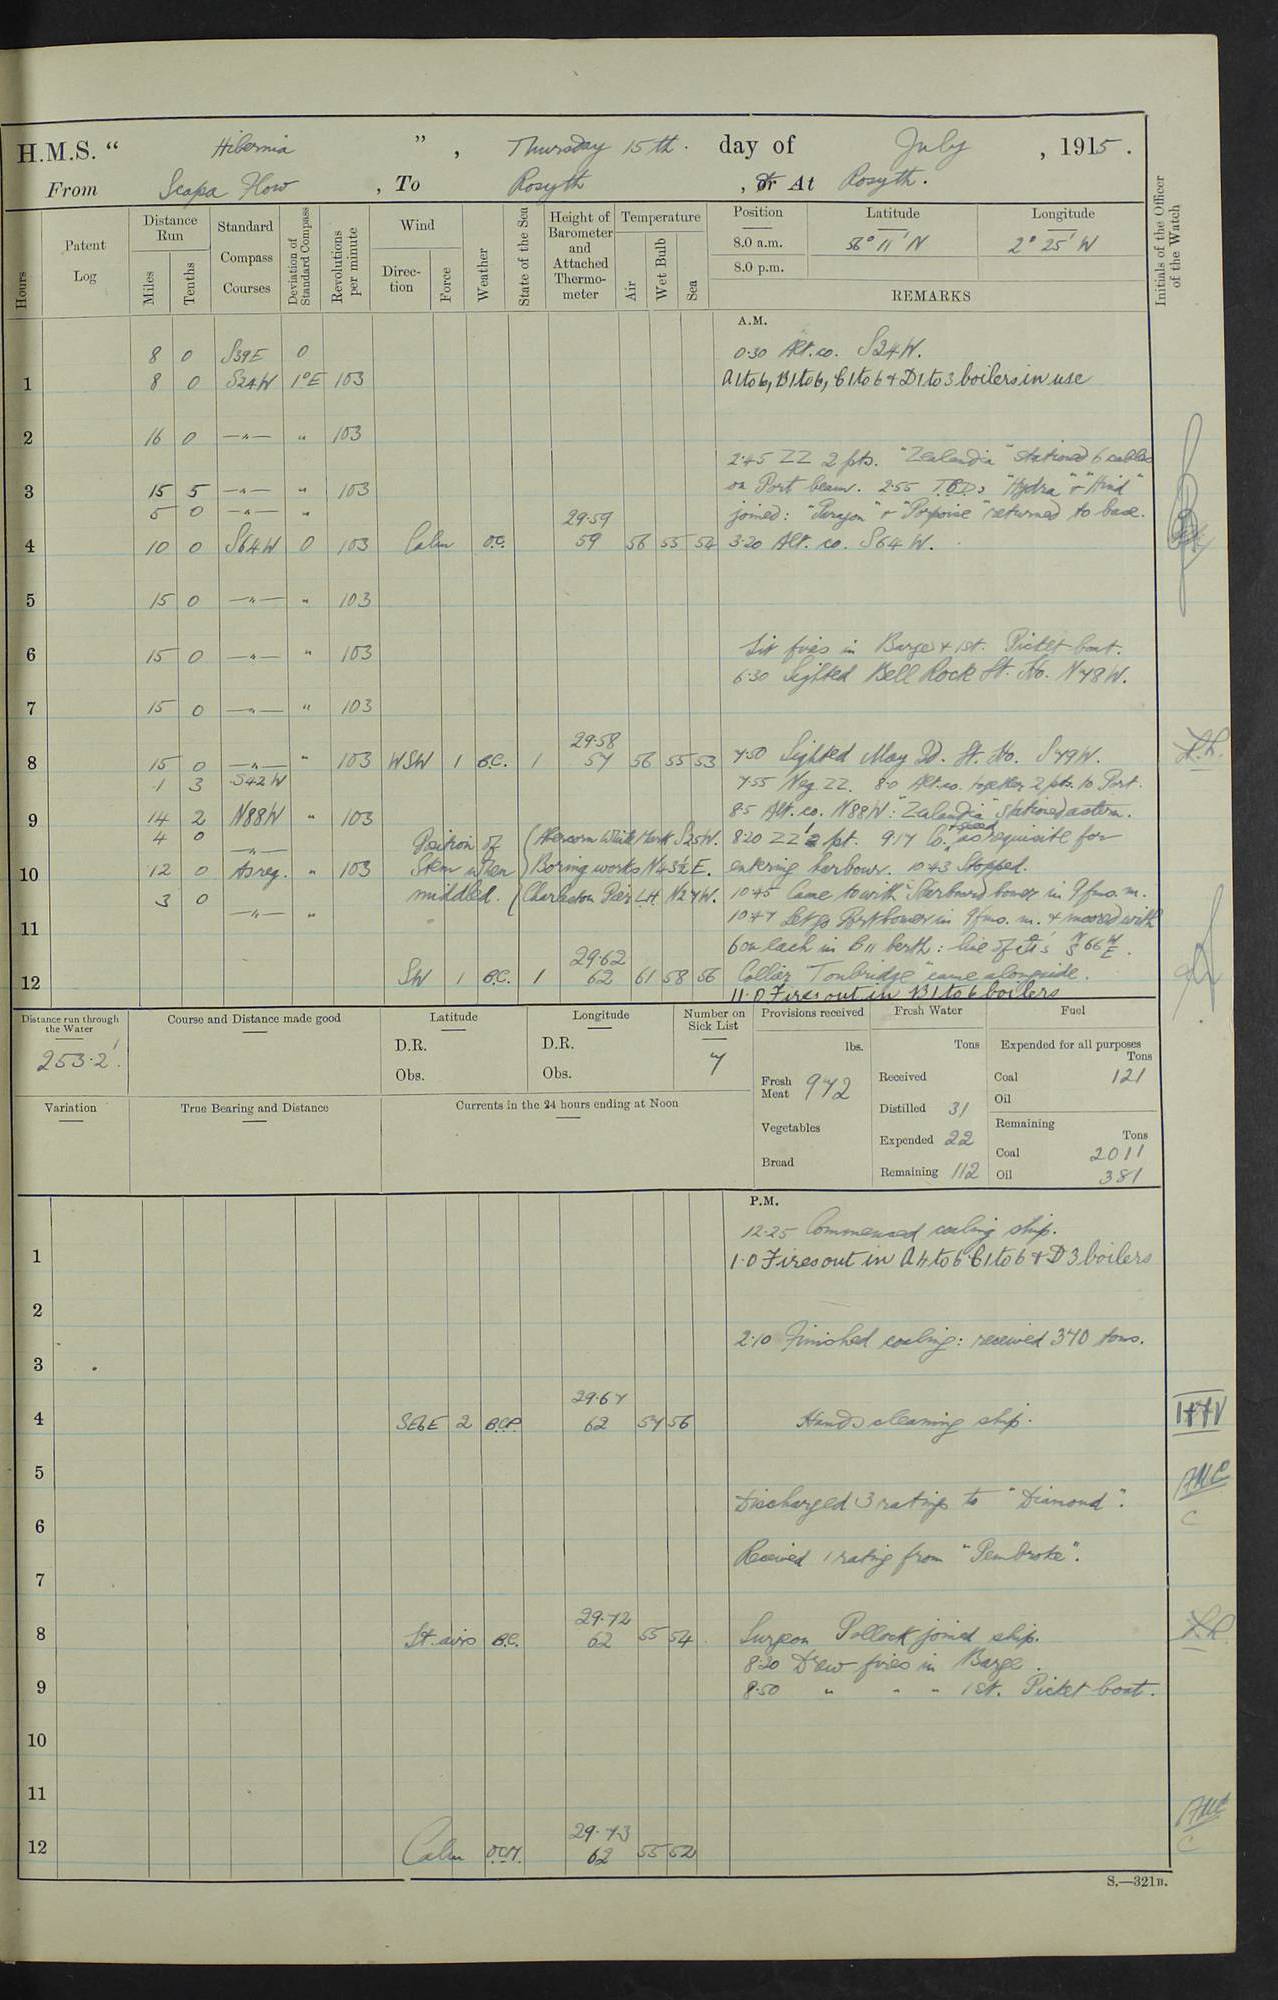 H.M.S. " Hibernia ", Thursday 15th. day of July, 1915.
From Scapa Flow, To Rosyth, or At Rosyth.
Hours
Patent Log
Distance Run
Miles
Tenths
Standard Compass Courses
Deviation of Standard Compass
Revolutions per minute
Wind
Direction
Force
Weather
State of the Sea
Height of Barometer and Attached Thermometer
Temperature
Air
Wet Bulb
Sea
Position
Latitude
Longitude
8.0 a.m. 56° 11' N 2° 25' W
8.0 p.m.
REMARKS
Initials of the Officer of the Watch
A.M.
8 0 S39E 0 0.30 Alt. co. S24W.
1 8 0 S24W 1°E 103 A1to6, B1to6, C1to6 + D1to3 boilers in use
2 16 0 —"— " 103
2.45 ZZ 2 pts. "Zealandia" stationed 6 cables
3 15 5 —"— " 103 on Port beam. 2.55 T.B.Ds "Hydra" + "Hind"
5 0 —"— " 29.59 joined: "Paragon" + "Porpoise" returned to base.
4 10 0 S64W 0 103 Calm o.c. 59 56 55 54 3.20 Alt. co. S64W.
5 15 0 —"— " 103
6 15 0 —"— " 103 Lit fires in Barge + 1st. Picket boat.
6.30 Sighted Bell Rock Lt. Ho. N78W.
7 15 0 —"— " 103
29.58
8 15 0 —"— " 103 WSW 1 B.C. 1 57 56 55 53 7.50 Sighted May Id. Lt. Ho. S79W.
1 3 S42W 7.55 Neg ZZ. 8.0 Alt. co. together 2 pts. to Port.
9 14 2 N88W " 103 8.5 Alt. co. N88W: "Zealandia" stationed astern.
4 0 —"— Position of (Abercorn White Mark S25W. 8.20 ZZ 1/2 pt. 9.17 Co. + speed as requisite for
10 12 0 As req. " 103 Stem when Boring works N43½E. entering harbour. 10.43 Stopped.
3 0 —"— " middled. (Charleston Pier LH. N27W. 10.45 Came to with Starboard bower in 9 fms. m.
11 10.47 Let go Port bower in 9 fms. m. + moored with
6 on each in B11 berth: line of
29.62
12 SW 1 B.C. 1 62 61 58 56 Collier "Tonbridge" came alongside.
11.0 Fires out in B1to6 boilers
Distance run through the Water
253.2'.
Course and Distance made good
Latitude
D.R.
Obs.
Longitude
D.R.
Obs.
Number on Sick List
7
Provisions received
lbs.
Fresh Meat 972
Vegetables
Bread
Fresh Water
Tons
Received
Distilled 31
Expended 22
Remaining 112
Fuel
Expended for all purposes
Tons
Coal 121
Oil
Remaining
Tons
Coal 2011
Oil 381
Variation
True Bearing and Distance
Currents in the 24 hours ending at Noon
P.M.
12.25 Commenced coaling ship.
1 1.0 Fires out in A4to6 C1to6 + D3 boilers
2
2.10 Finished coaling: received 370 tons.
3
29.67
4 SEbE 2 B.C.P. 62 57 56 Hands cleaning ship.
5
Discharged 3 ratings to "Diamond".
6
Received 1 rating from "Pembroke".
7
29.72
8 Lt. airs B.C. 62 55 54 Surgeon Pollock joined ship.
8.20 Drew fires in Barge.
9 8.50 " " " 1st. Picket boat.
10
11
29.73
12 Calm O.C.M. 62 55 52
S.—321B.